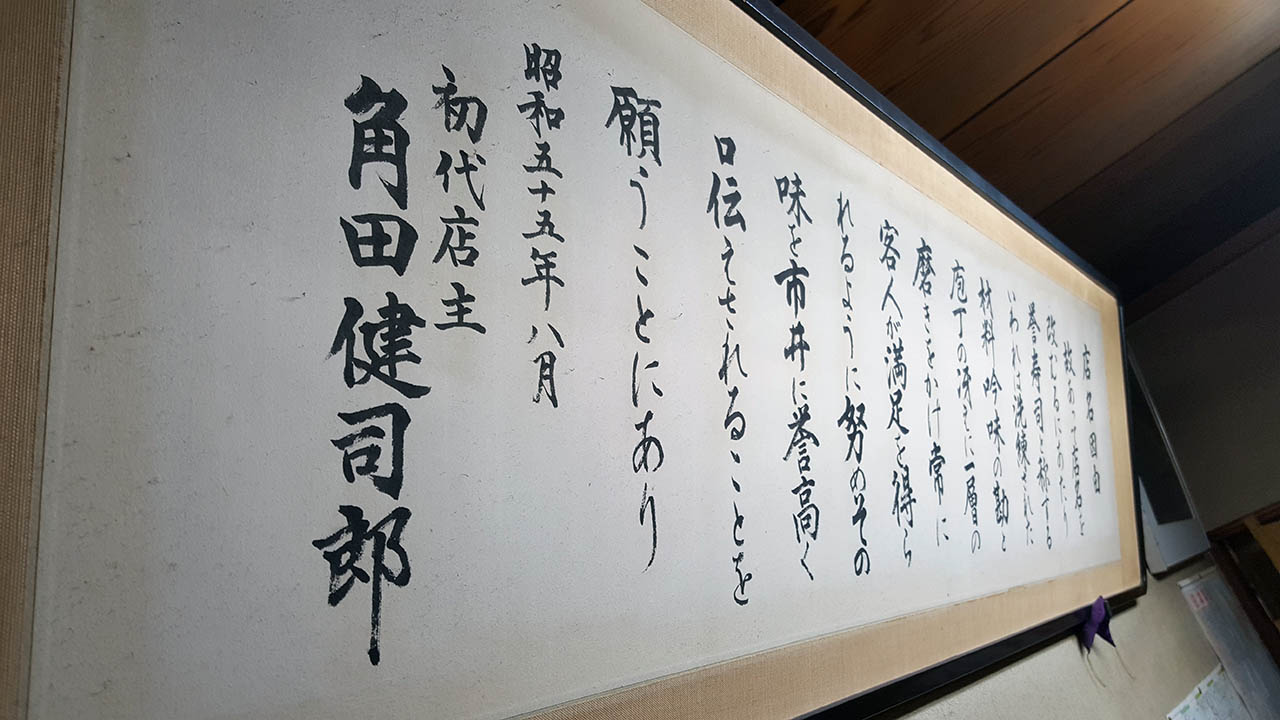 店名因由
故あって店名を
改むるにあたり
誉寿司と称する
いわれは洗練された
材料吟味の勘と
庖丁の冴きに一層の
磨きをかけ常に
客人が満足を得ら
れるように努めその
味を市井に誉高く
口伝えされることを
願うことにあり
昭和五十五年八月
初代店主
角田健司郎